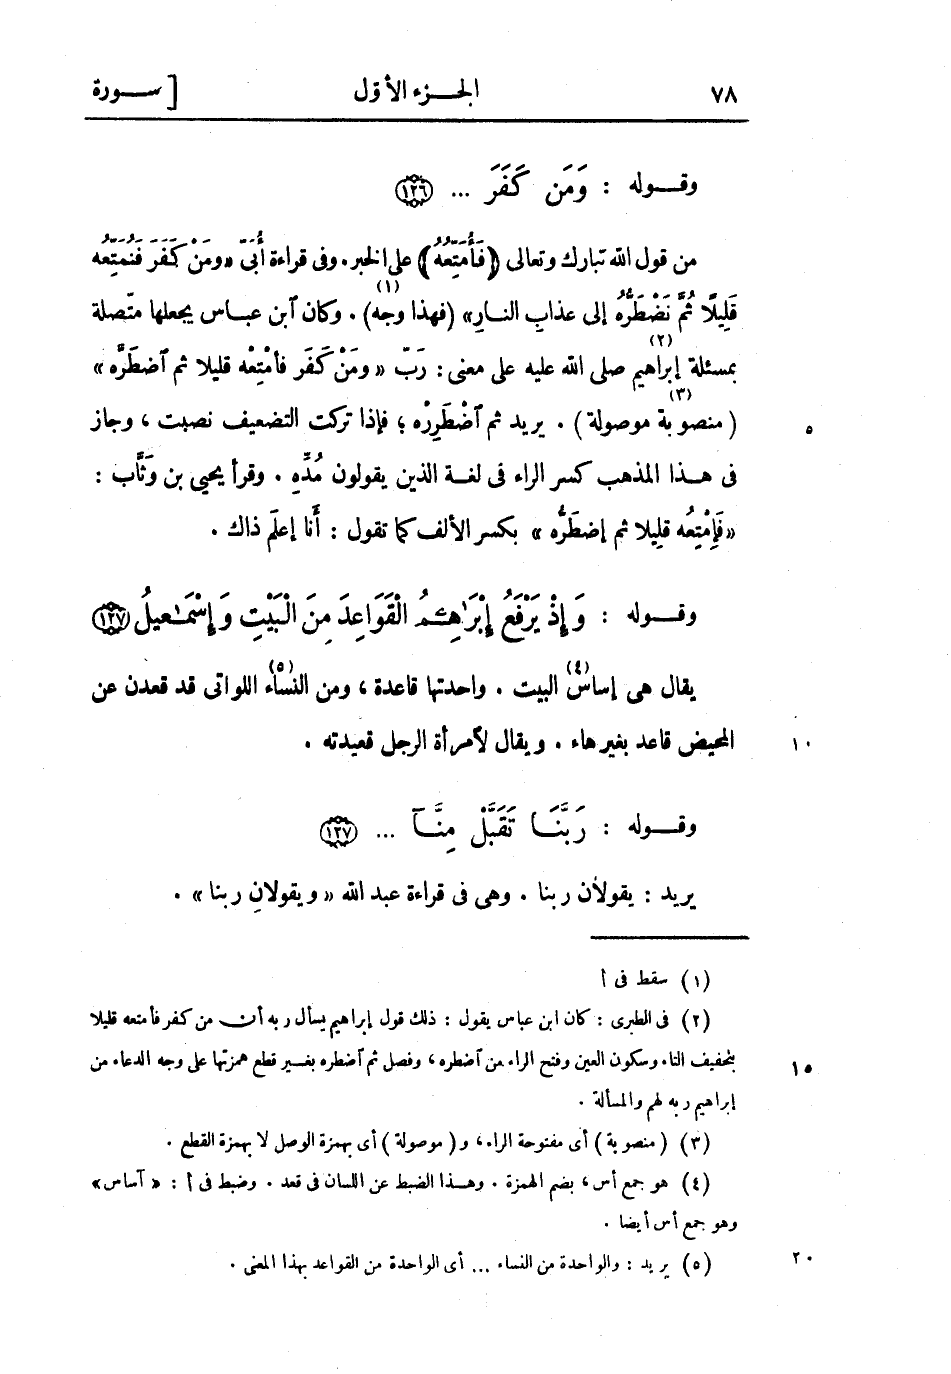 ٧٨ الجزء الأوّل [ سورة
وقوله : وَمَن كَفَرَ ... ١٢٦
من قول الله تبارك وتعالى (فَأُمَتِّعُهُ) على الخبر. وفى قراءة أُبَىّ «ومَنْ كَفَرَ فَنُمَتِّعُه
قَلِيلًا ثُمَّ نَضْطَرُّهُ إلى عذاب النار» (فهذا وجه)(١) . وكان آبن عباس يجعلها متّصلة
بمسئلة إبراهيم(٢) صلى الله عليه على معنى : رَبّ « ومَنْ كَفَر فأمْتِعْه قليلا ثم آضطَرَّه »
( منصوبة موصولة )(٣) . يريد ثم آضْطَرِرْه ؛ فإذا تركت التضعيف نصبت ، وجاز ٥
فى هذا المذهب كسر الراء فى لغة الذين يقولون مُدِّهِ . وقرأ يحيى بن وَثَّاب :
«فَإِمْتِعُه قليلا ثم إضطَرُّه » بكسر الألف كما تقول : أَنا إعلَم ذاك .
وقوله : وَإِذْ يَرْفَعُ إِبْرَاهِـۧمُ الْقَوَاعِدَ مِنَ الْبَيْتِ وَإِسْمَاعِيلُ ١٢٧
يقال هى إساس(٤) البيت . واحدتها قاعدة ، ومن النساء(٥) اللواتى قد قعدن عن
المحيض قاعد بغير هاء . ويقال لآمرأة الرجل قعيدته . ١٠
وقوله : رَبَّنَا تَقَبَّلْ مِنَّآ ... ١٢٧
يريد : يقولان ربنا . وهى فى قراءة عبد الله « ويقولانِ ربنا » .
(١) سقط فى أ
(٢) فى الطبرى : كان ابن عباس يقول : ذلك قول إبراهيم يسأل ربه أن من كفر فأمتعه قليلا
بتخفيف التاء وسكون العين وفتح الراء من آضطره ، وفصل ثم آضطره بغير قطع همزتها على وجه الدعاء من ١٥
إبراهيم ربه لهم والمسألة .
(٣) ( منصوبة ) أى مفتوحة الراء ، و ( موصولة ) أى بهمزة الوصل لا بهمزة القطع .
(٤) هو جمع أس ، بضم الهمزة . وهذا الضبط عن اللسان فى قعد . وضبط فى أ : « آساس »
وهو جمع أس أيضا .
(٥) يريد : والواحدة من النساء ... أى الواحدة من القواعد بهذا المعنى . ٢٠